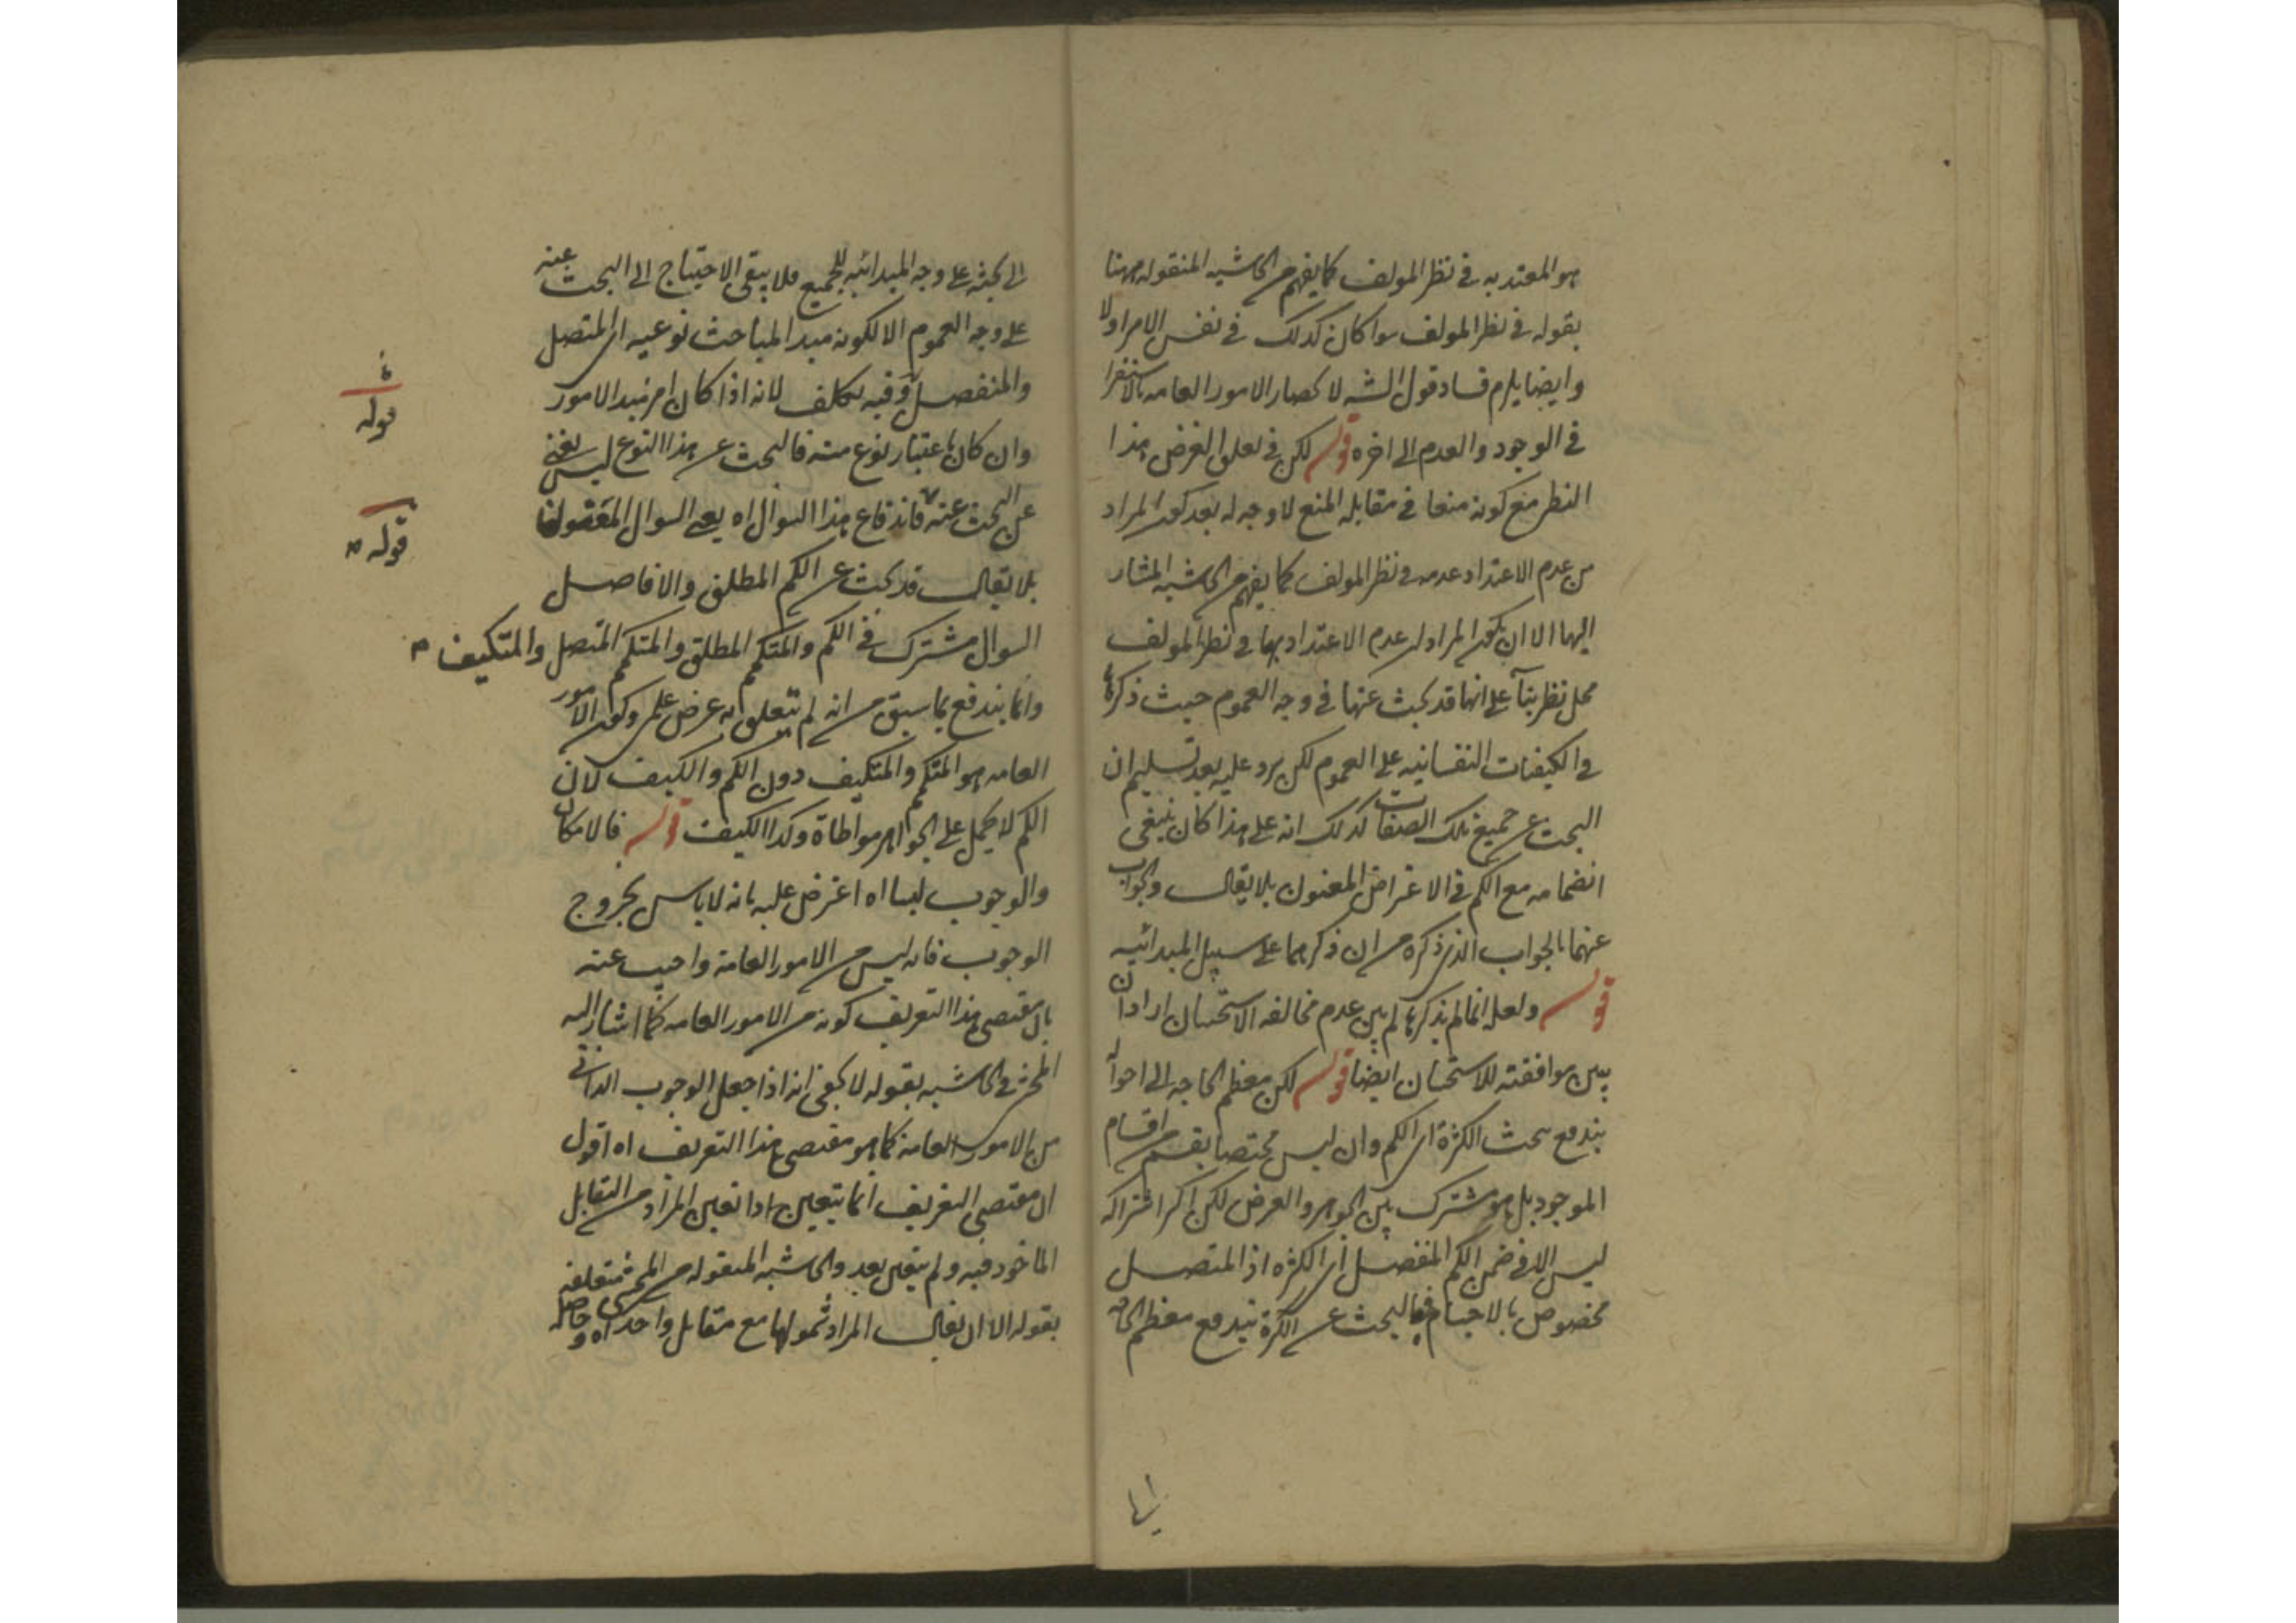 هو المعتد به فى نظر المولف كما يفهم من الحاشيه المنقوله ههنا
بقوله فى نظر المولف سوا كان كذلك فى نفس الامر اولا
وايضا يلزم فساد قول الشه لا كصار الامور العامه بالاستقرا
فى الوجود والعدم الى اخره قوله لكن فى تعلق الغرض هذا
النظر مع كونه منعا فى مقابله المنع لا وجه له بعد كون المراد
من عدم الاعتداد عدمه فى نظر المولف كما يفهم من الحاشيه المشار
اليها الا ان يكون المراد ان عدم الاعتداد بها فى نظر المولف
محل نظر بنآ على انها قد بحث عنها فى وجه العموم حيث ذكرها
فى الكيفيات النفسانيه على العموم لكن يرد عليه بعد تسليم ان
البحث عن جميع تلك الصفات كذلك انه على هذا كان ينبغى
انضمامه مع الكم فى الاعتراض المعنون بلا يقال والجواب
عنهما بالجواب الذى ذكره من ان ذكرهما على سبيل المبدائيه
قوله ولعله انما لم يذكرها لم يبن عدم مخالفه الاستحسان اراد ان
يبين موافقته للاستحسان ايضا قوله لكن معظم الحاجه الى احوا
يندفع بحث الكثرة اى الكم وان ليس مختصا بقسم من اقسام
الموجود بل هو مشترك بين الجوهر والعرض لكن اكر اشتراكه
ليس الا فى ضمن الكم المنفصل اى الكثره اذ المتصل
مخصوص بالاجسام فبالبحث عن الكثرة يندفع معظم الحاجه
الى بحثه على وجه المبدائيه للجميع فلا يبقى الاحتياج الى البحث عنه
على وجه العموم الا لكونه مبدا لمباحث نوعيه اى المتصل
والمنفصل وفيه تكلف لانه اذا كان امر مبدا لامور
وان كان باعتبار نوع منه فالبحث عن هذا النوع ليس يغنى
عن البحث عنه فاندفاع هذا السوال اه يعنى السوال المعنون
بلا يقال قد بحث عن الكم المطلق والافاصل
السوال مشترك فى الكم والمتكمم المطلق والمتكمم المتصل والمتكيف
وانما يندفع بما سبق من انه لم يتعلق به غرض علمى وكون الامور
العامه هو المتكمم والمتكيف دون الكم والكيف لان
الكم لا يحمل على الجواهر مواطاة وكذا الكيف قوله فالامكان
والوجوب ليسا اه اعترض عليه بانه لا باس بخروج
الوجوب فانه ليس من الامور العامة واجيب عنه
بان مقتضى هذا التعريف كونه من الامور العامه كما اشار اليه
المحشى فى الحاشيه بقوله لا يخفى انه اذا جعل الوجوب الذاتى
من الامور العامه كما هو مقتضى هذا التعريف اه اقول
ان مقتضى التعريف انما يتعين اذا تعين المراد من التقابل
الماخوذ فيه ولم يتعين بعد والحاشيه المنقوله من المحشى متعلقه
بقوله الا ان يقال المراد شمولها مع مقابل واحد اه وحاصله
قوله
قوله